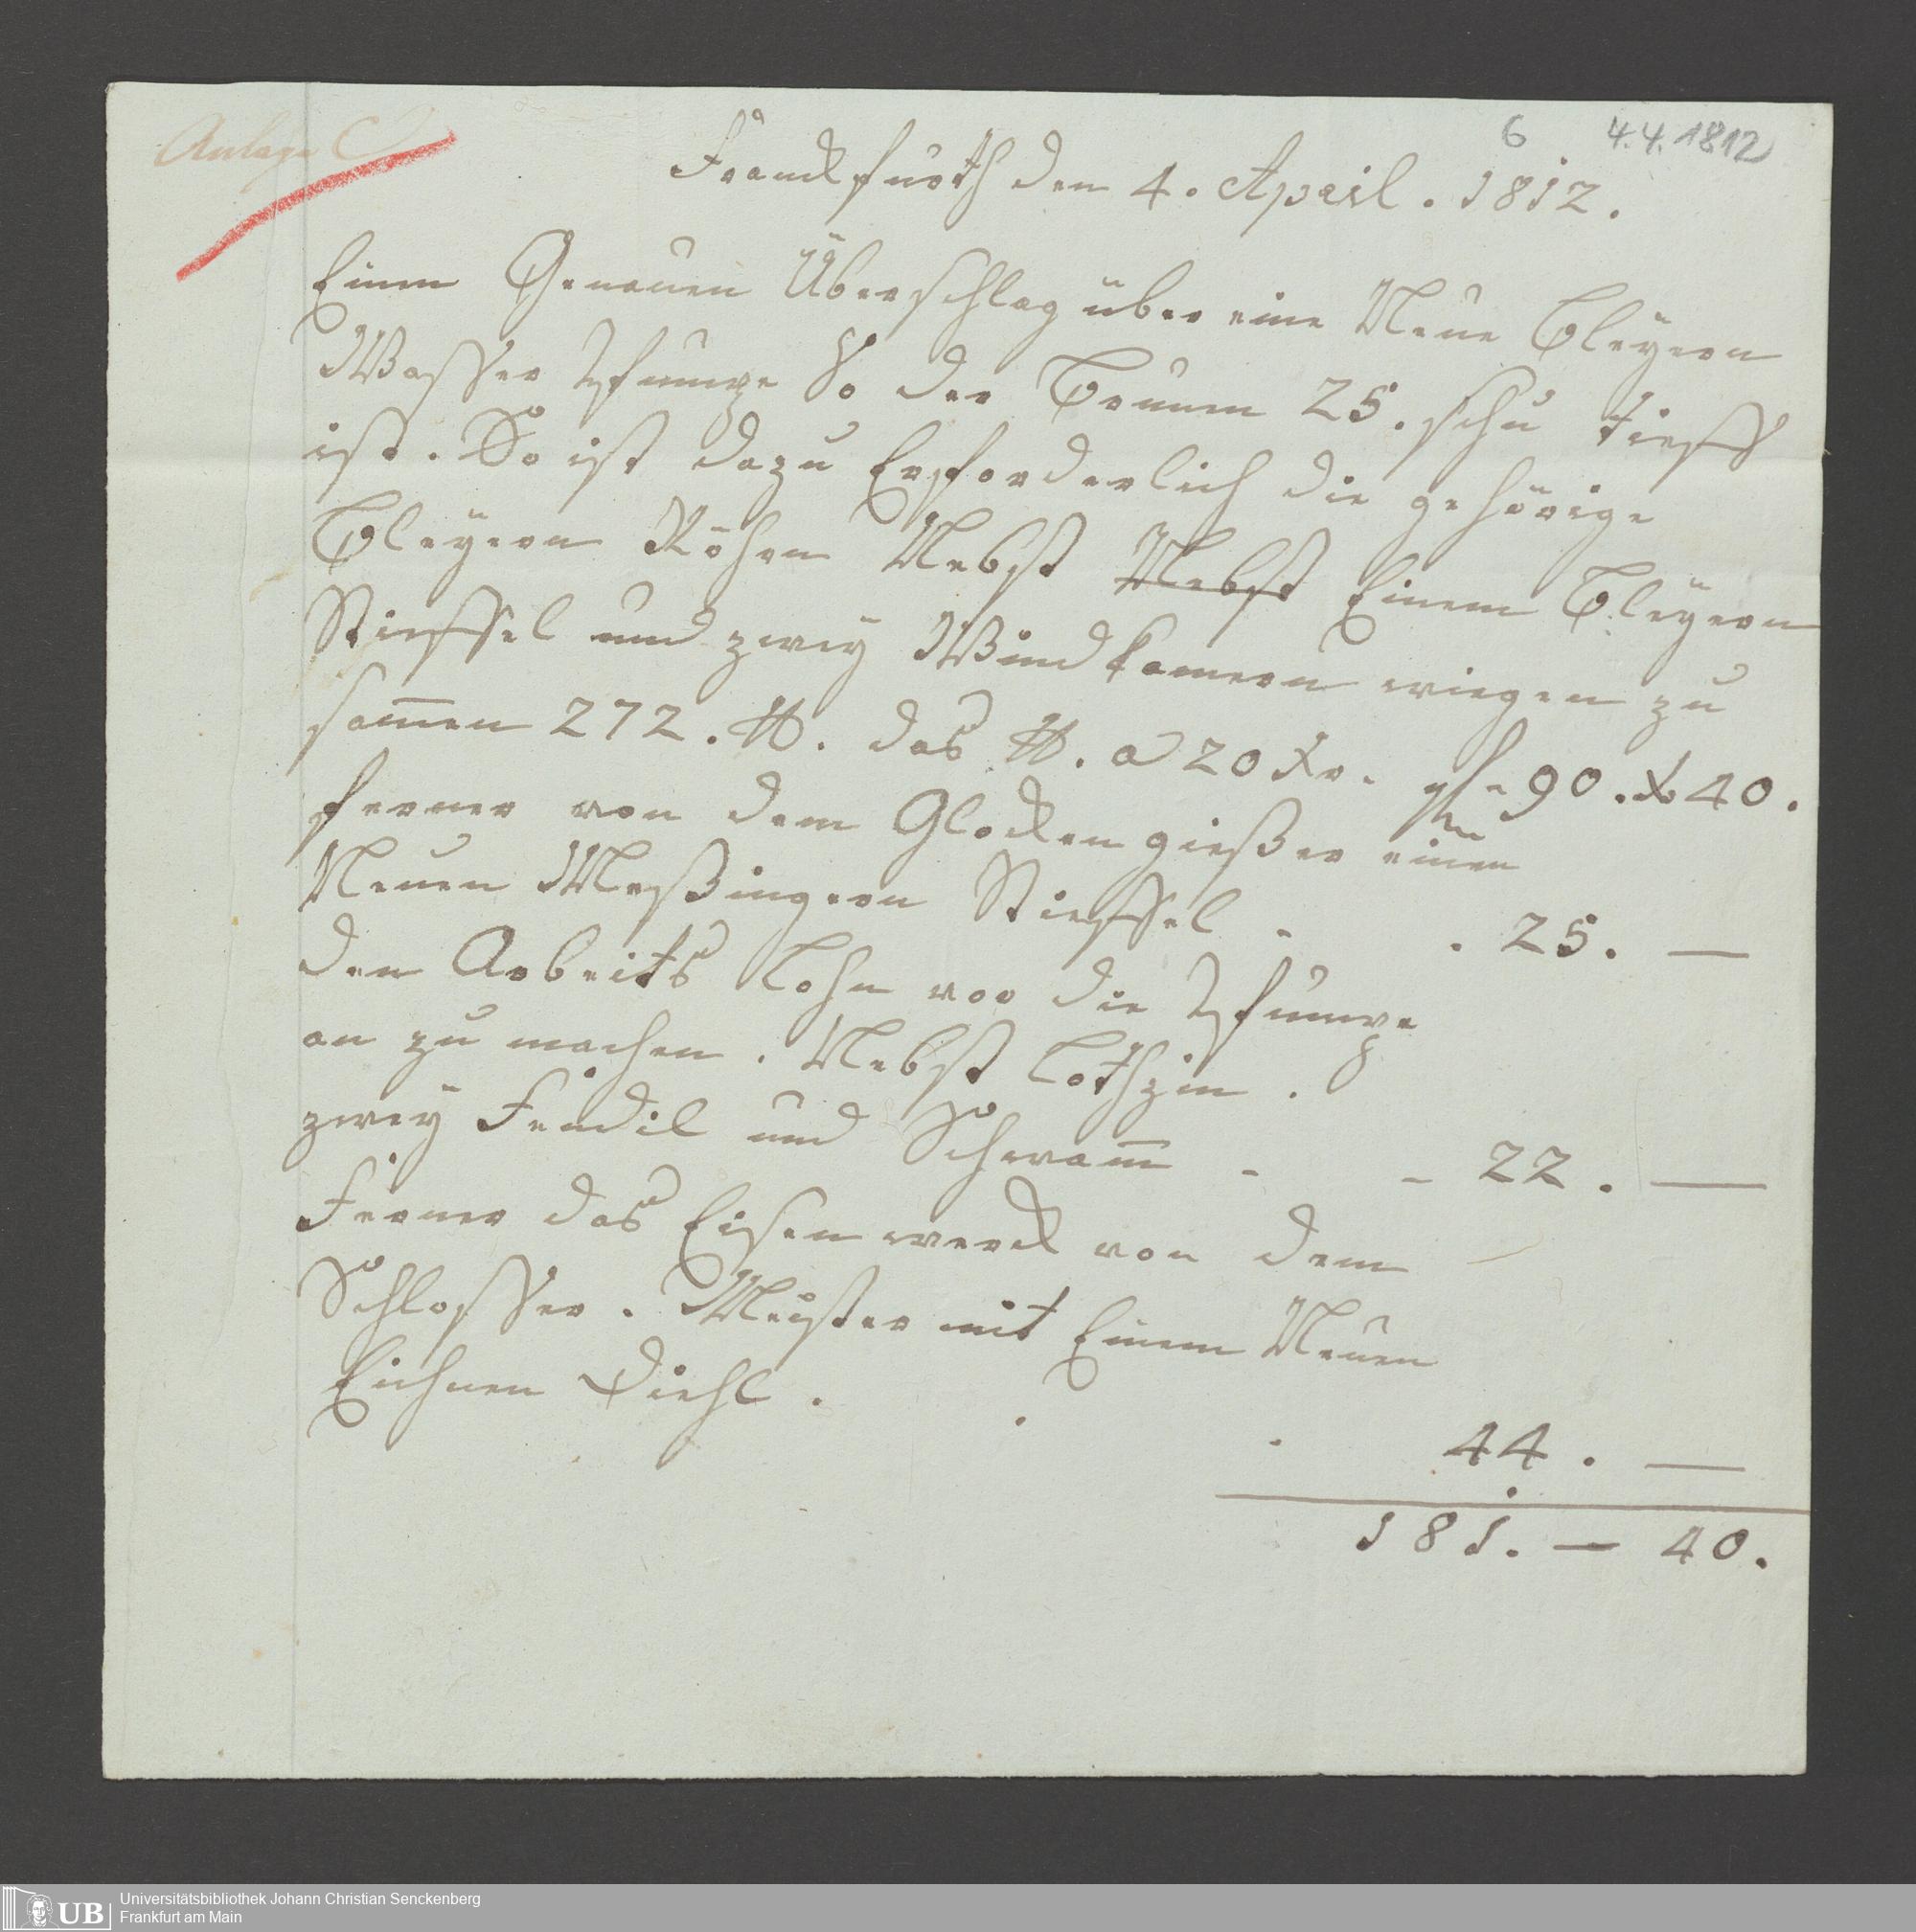 Anlage C
6 4.4.1812
Franckfurth den 4. April. 1812.
Einen Genauen Überschlag über eine Neue Bleyern
Wasser Pfumpe So der Brunen 25. schu tieff
ist. So ist dazu Erforderlich die gehörige
Bleyern Röhen Nebst Nebst Einem Bleyern
Stieffel und zwey Windkamern wiegen zu
sam̅en 272. ℔. das ℔. a 20 Xr. f 90. Xr 40.
ferner von dem Glocken gießer einen
Neuen Meßingern Stieffel - . 25. —
den Arbeits Lohn vor die Pfumpe
an zu machen. Nebst Lothzin.
zwey Fendil und Schwam̅ - - 22. —
Ferner das Eisen werck von dem
Schlosser. Meister mit Einem Neuen
Eichnen Diehl . .
. 44. —
181. — 40.
UB
Universitätsbibliothek Johann Christian Senckenberg
Frankfurt am Main